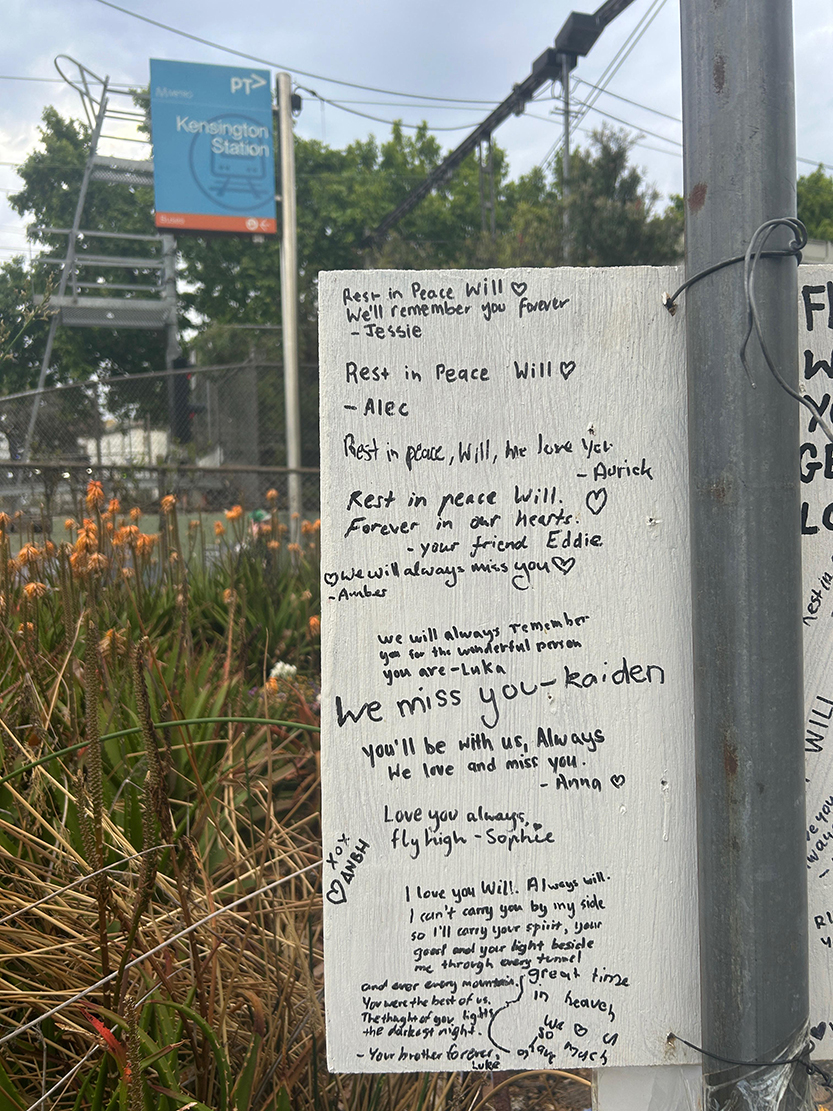 PT>
METRO
Kensington
Station
Buses
Rest in Peace Will ♡
We'll remember you forever
- Jessie
Rest in Peace Will ♡
- Alec
Rest in peace, Will, we love you
- Aurick
Rest in peace Will. ♡
Forever in our hearts.
- your friend Eddie
♡ we will always miss you ♡
- Amber
we will always remember
you for the wonderful person
you are - Luka
We miss you - kaiden
you'll be with us, Always
We love and miss you.
- Anna ♡
Love you always,
fly high - Sophie
xox
♡ ANBH
I love you Will. Always will.
I can't carry you by my side
so I'll carry your spirit, your
goof and your light beside
me through every tunnel
and over every mountain.
You were the best of us.
The thaght of you lights
the darkest night.
- Your brother forever,
Luke
great time
in heaven
We ♡ u
so
much
WILL